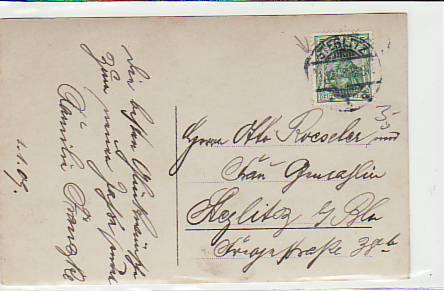 Die besten Glückwünsche
zum neuen Jahre sendet
Familie
1.1.09.
STEGLITZ
Herrn Otto Roeseler und
Frau Gemahlin
Steglitz b/Bln
38 b